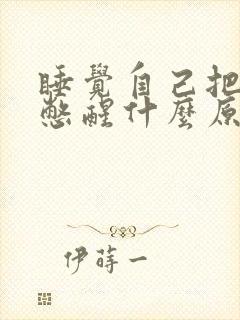 睡覺自己把
憋醒什麼原
伊蒔一